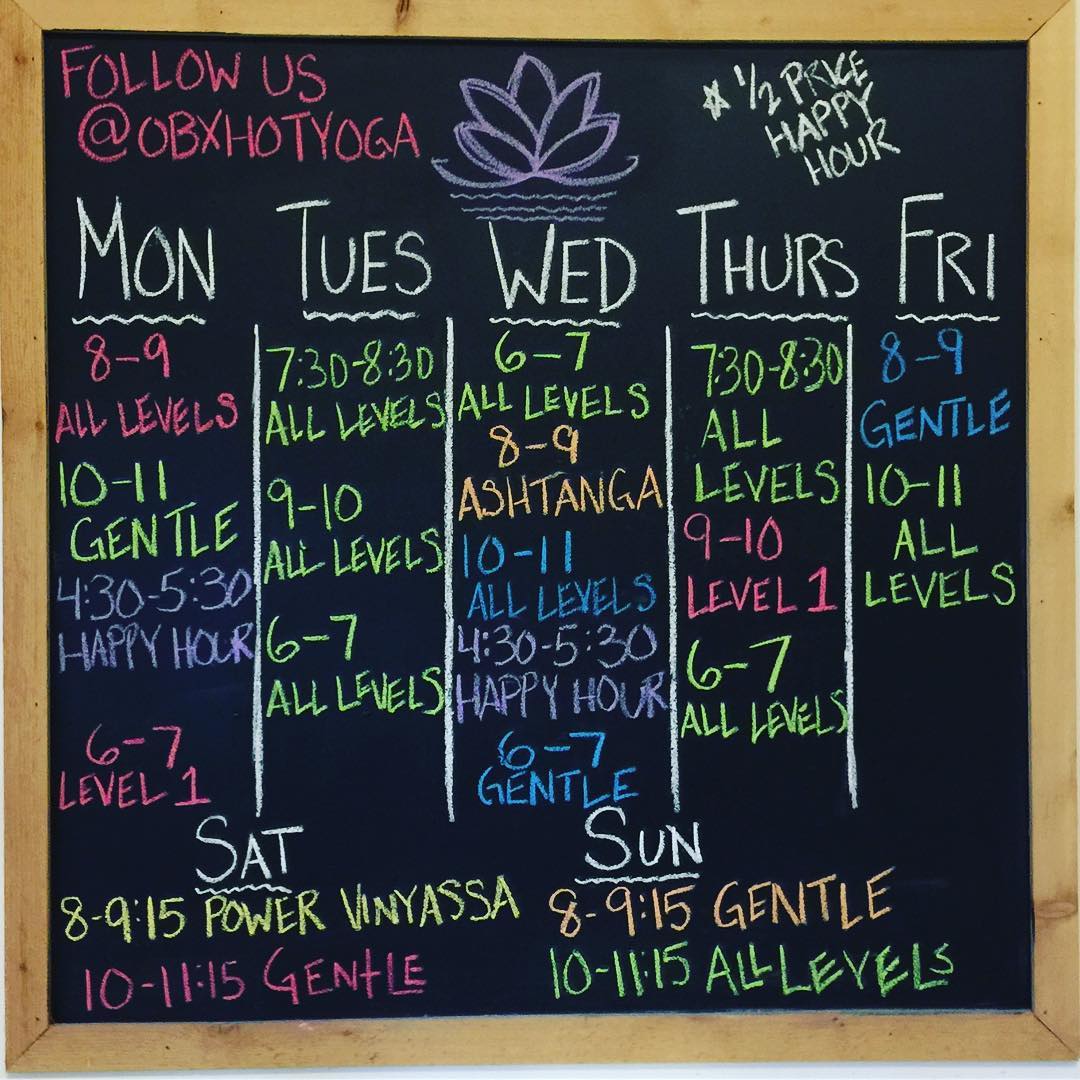 FOLLOW US
@OBXHOTYOGA
* 1/2 PRICE
HAPPY
HOUR
MON
8-9
ALL LEVELS
10-11
GENTLE
4:30-5:30
HAPPY HOUR
6-7
LEVEL 1
TUES
7:30-8:30
ALL LEVELS
9-10
ALL LEVELS
6-7
ALL LEVELS
WED
6-7
ALL LEVELS
8-9
ASHTANGA
10-11
ALL LEVELS
4:30-5:30
HAPPY HOUR
6-7
GENTLE
THURS
7:30-8:30
ALL
LEVELS
9-10
LEVEL 1
6-7
ALL LEVELS
FRI
8-9
GENTLE
10-11
ALL
LEVELS
SAT
8-9:15 POWER VINYASSA
10-11:15 GENTLE
SUN
8-9:15 GENTLE
10-11:15 ALL LEVELS